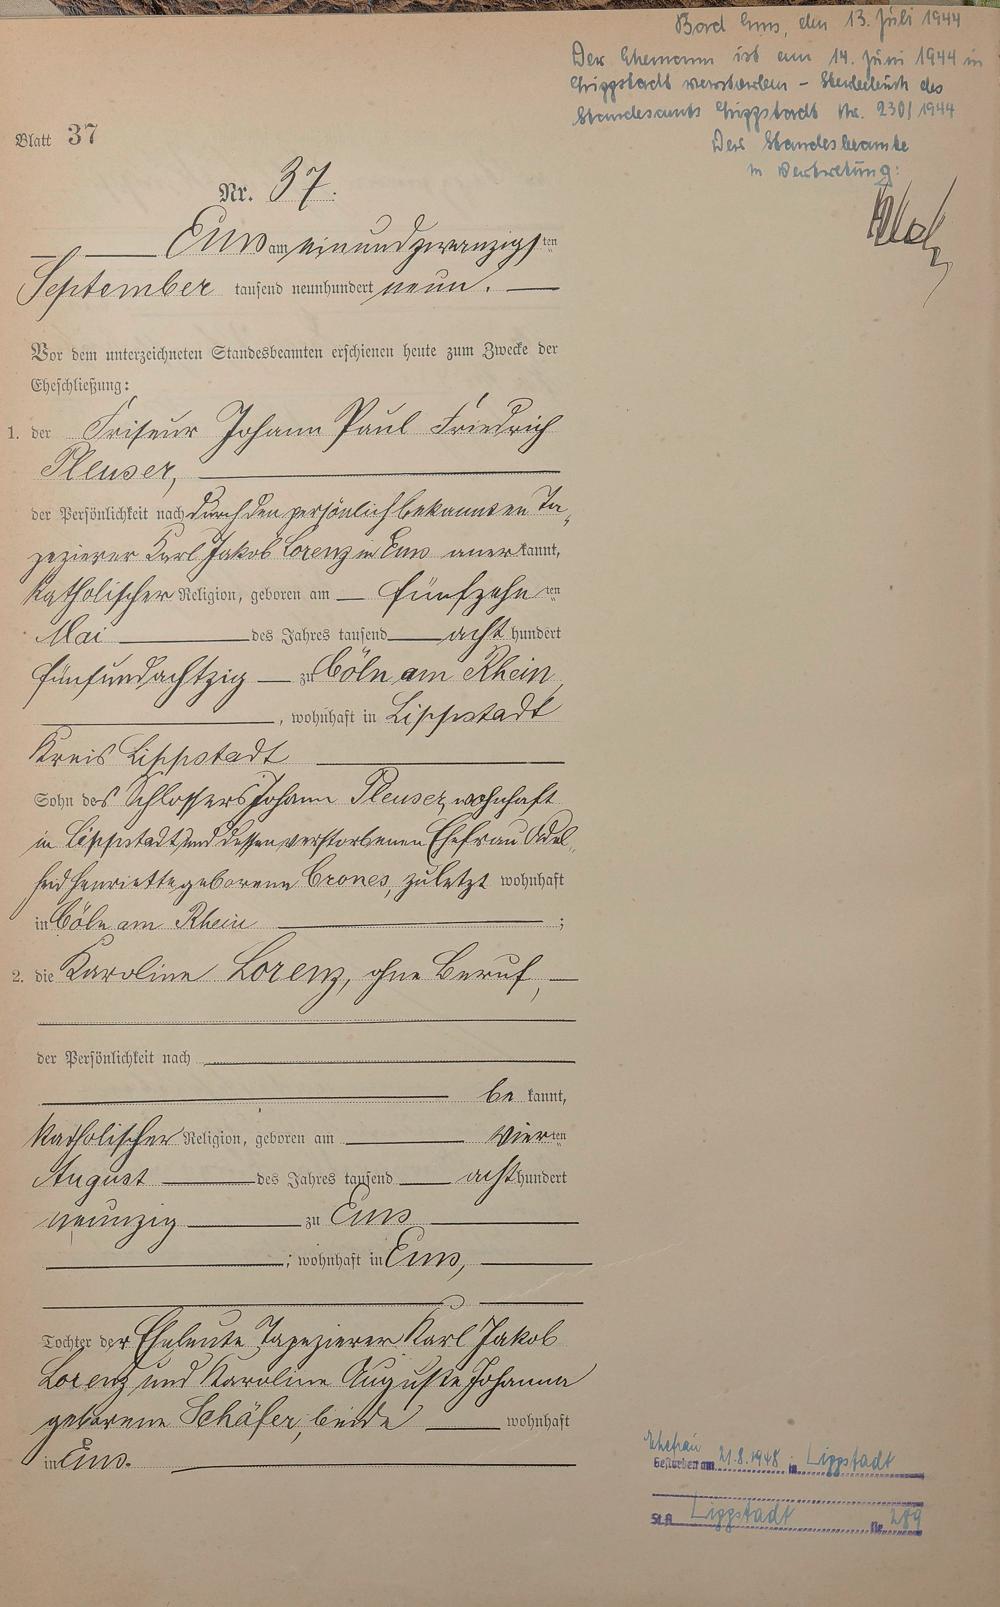 Bad Ems, den 13. Juli 1944
Der Ehemann ist am 14. Juni 1944 in
Lippstadt verstorben – Sterbebuch des
Standesamts Lippstadt Nr. 230/1944
Der Standesbeamte
in Vertretung:
Blatt 37
Nr. 37.
Ems am einundzwanzigsten
September tausend neunhundert neun.
Vor dem unterzeichneten Standesbeamten erschienen heute zum Zwecke der
Eheschließung:
1. der Friseur Johann Paul Friedrich
Pleuser,
der Persönlichkeit nach durch den persönlich bekannten Ta-
pezierer Karl Jakob Lorenz in Ems anerkannt,
katholischer Religion, geboren am fünfzehnten
Mai des Jahres tausend achthundert
fünfundachtzig zu Cöln am Rhein,
, wohnhaft in Lippstadt
Kreis Lippstadt
Sohn des Schlossers Johann Pleuser, wohnhaft
in Lippstadt und dessen verstorbenen Ehefrau Adel-
heid Henriette geborene Crones, zuletzt wohnhaft
in Cöln am Rhein ;
2. die Karoline Lorenz, ohne Beruf,
der Persönlichkeit nach
bekannt,
katholischer Religion, geboren am vierten
August des Jahres tausend achthundert
neunzig zu Ems
; wohnhaft in Ems,
Tochter der Eheleute Tapezierer Karl Jakob
Lorenz und Karoline Auguste Johanna
geborene Schäfer, beide wohnhaft
in Ems.
Ehefrau
Gestorben am 21.8.1948 in Lippstadt
St.A. Lippstadt Nr. 289